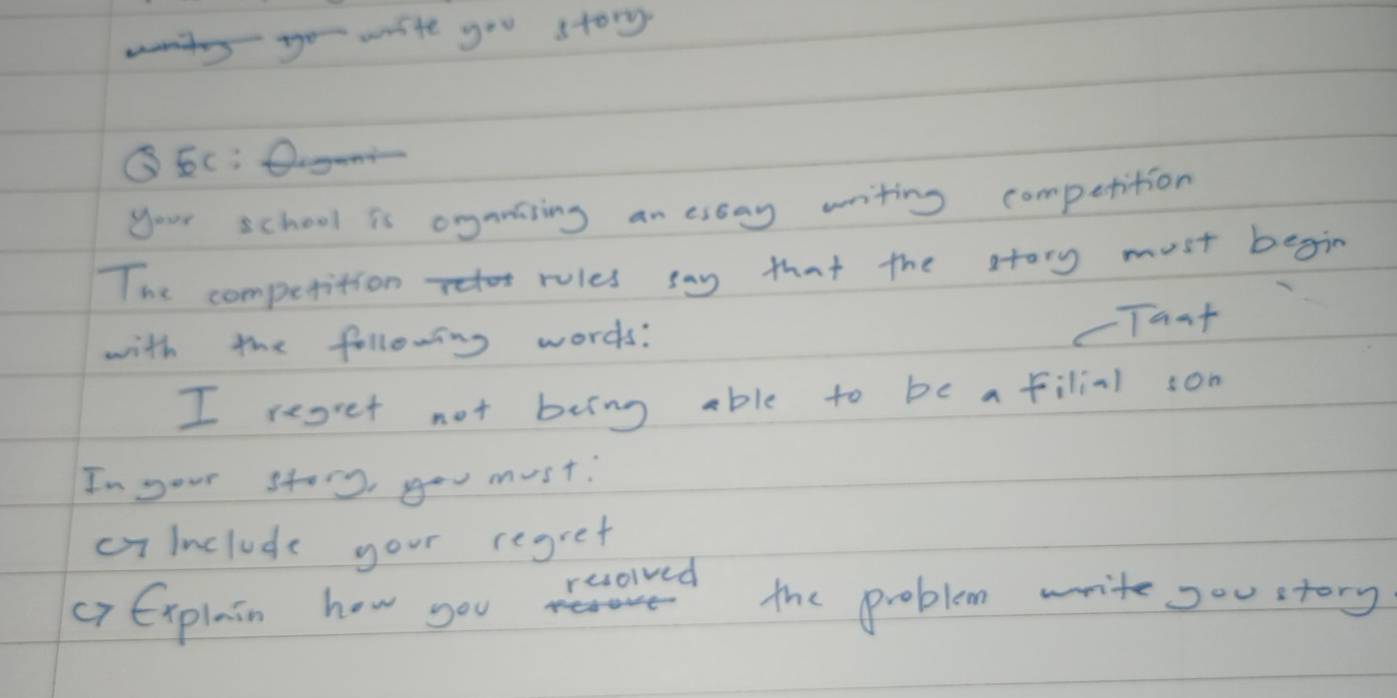 write you story.
Q 5c:
Your school is organising an essay writing competition
The competition rules say that the story must begin
with the following words:
Taat
I regret not being able to be a filial son
In your story, you must:
Include your regret
Explain how you resolved the problem write you story.